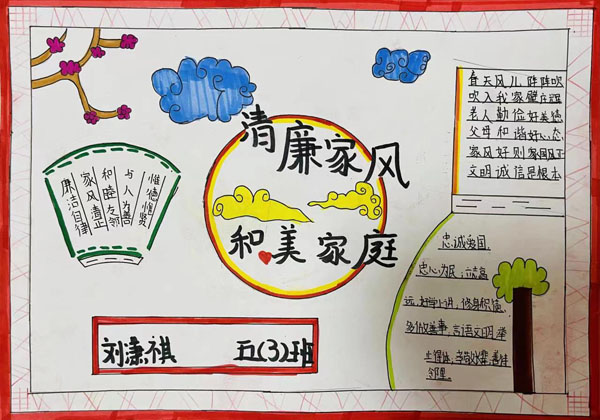 清廉家风
和美家庭
惟德惟贤
与人为善
和睦友邻
家风清正
廉洁自律
春天风儿阵阵吹
吹入我家
老人勤俭好美德
父母和谐好心态
家风好则家国风正
文明诚信是根本
忠诚爱国
忠心为民,志高
远,好学小讲,修身积德
多做善事,言语文明,举
止得体,孝敬父辈,善待
邻里.
刘潇祺 五(3)班